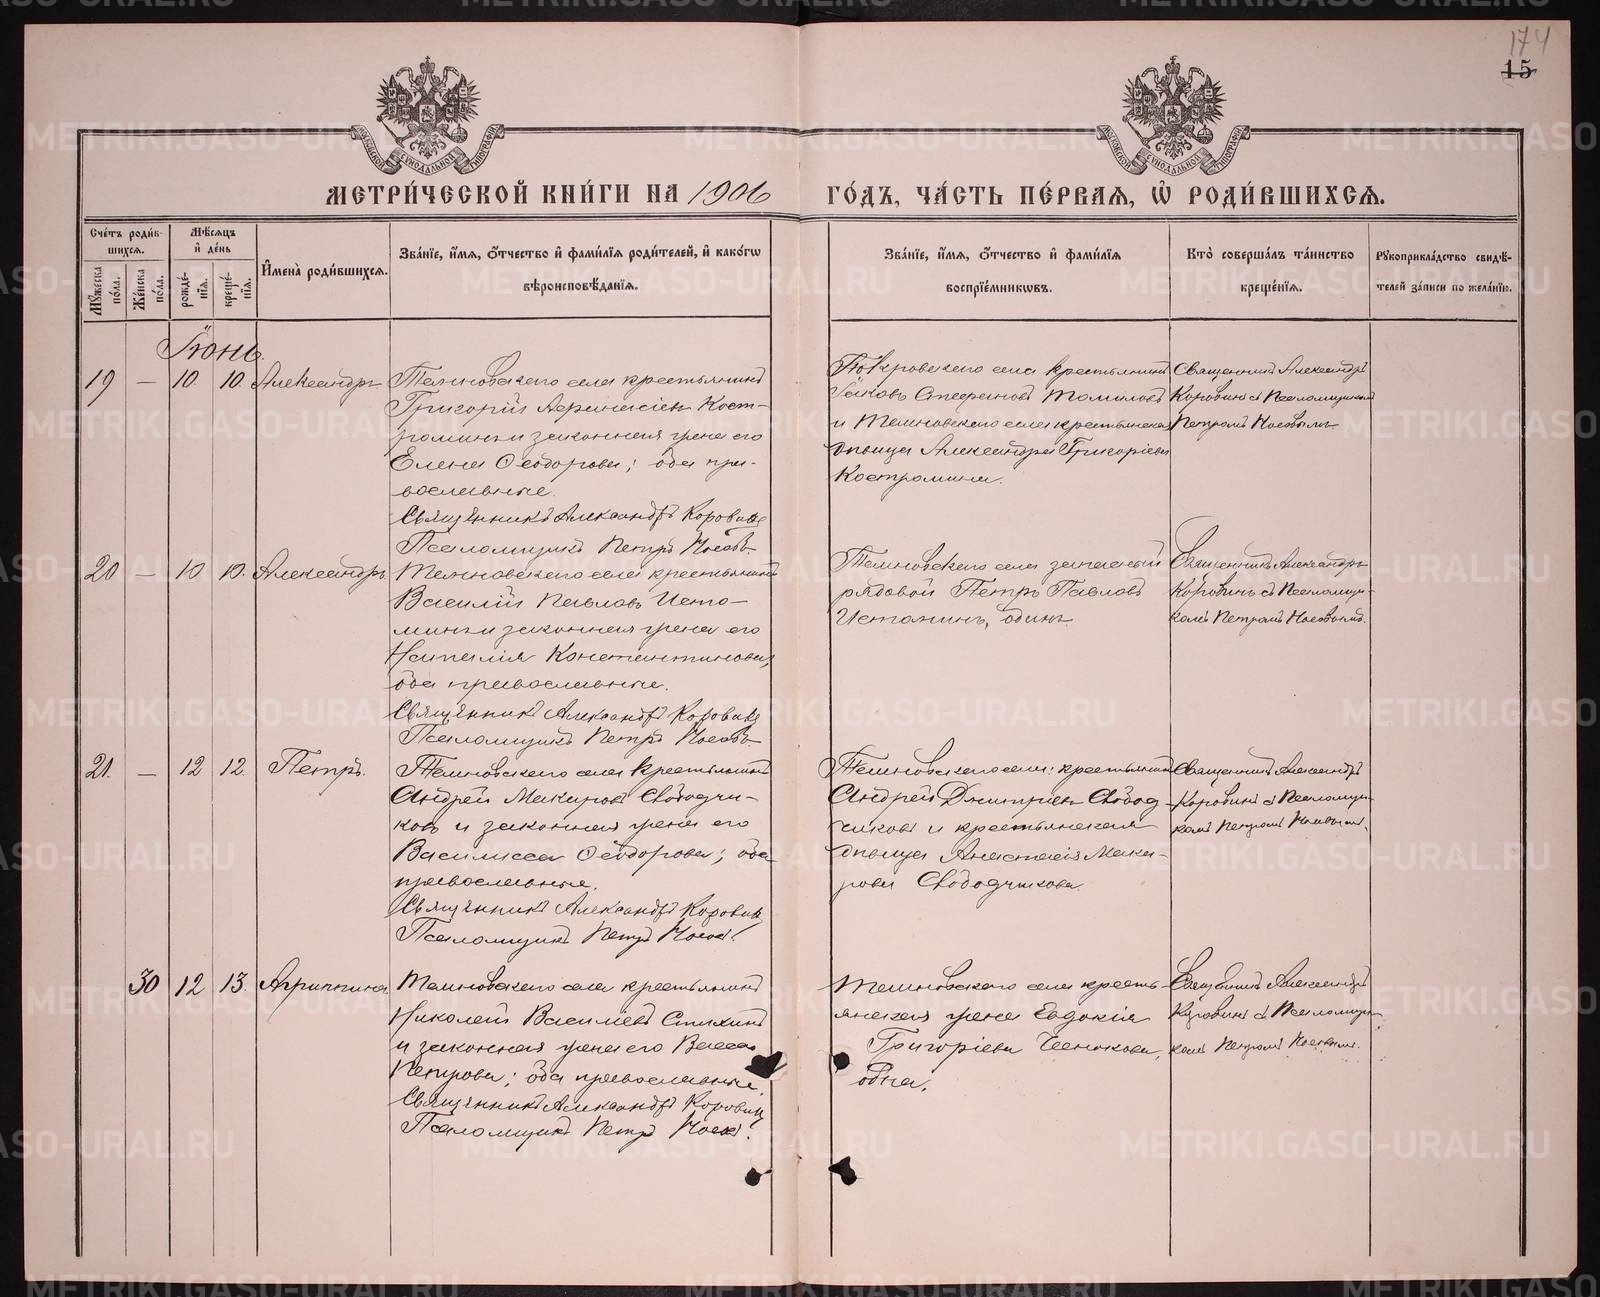 174
15
МОСКОВСКОЙ СѴНОДАЛЬНОЙ ТИПОГРАФІИ
МОСКОВСКОЙ СѴНОДАЛЬНОЙ ТИПОГРАФІИ
МЕТРИ́ЧЕСКОЙ КНИ́ГИ НА 1906 ГО́ДЪ, ЧА́СТЬ ПЕ́РВАЯ, Ѡ҆ РОДИ́ВШИХСЯ.
Сче́тъ роди́в-
шихся.
Му́жеска по́ла.
Же́нска по́ла.
Мѣ́сяцъ
и҆ де́нь
рожде́-
нїя.
креще́-
нїя.
И҆мена̀ роди́вшихся.
Зва́нїе, и҆́мя, ѻ҆́тчество и҆ фами́лїя роди́телей, и҆ како́гѡ
вѣроисповѣ́данїя.
Зва́нїе, и҆́мя, ѻ҆́тчество и҆ фами́лїя
воспрїе́мникѡвъ.
Кто̀ соверша́лъ та́инство
креще́нїя.
Рꙋкоприкла́дство свидѣ́-
телей за́писи по жела́нїю.
Іюнь.
19 — 10. 10. Александръ
Темновскаго села крестьянинъ
Григорій Аѳанасіевъ Кост-
роминъ и законная жена его
Елена Ѳеодорова; оба пра-
вославные.
Священникъ Александръ Коровинъ
Псаломщикъ Петръ Носовъ
Покровскаго села крестьянинъ
Іаковъ Стефановъ Томиловъ
и Темновскаго села крестьянская
дѣвица Александра Григоріева
Костромина.
Священникъ Александръ
Коровинъ съ Псаломщикомъ
Петромъ Носовымъ.
20 — 10 10. Александръ.
Темновскаго села крестьянинъ
Василій Павловъ Исто-
минъ и законная жена его
Наталія Константинова;
оба православные.
Священникъ Александръ Коровинъ
Псаломщикъ Петръ Носовъ
Темновскаго села запасный
рядовой Петръ Павловъ
Истоминъ, одинъ.
Священникъ Александръ
Коровинъ съ Псаломщи-
комъ Петромъ Носовымъ.
21. — 12 12. Петръ.
Темновскаго села крестьянинъ
Андрей Макаровъ Свободчи-
ковъ и законная жена его
Василисса Ѳеодорова; оба
православные.
Священникъ Александръ Коровинъ
Псаломщикъ Петръ Носовъ
Темновскаго села: крестьянинъ
Андрей Дмитріевъ Свобод-
чиковъ и крестьянская
дѣвица Анастасія Мака-
рова Свободчикова.
Священникъ Александръ
Коровинъ съ Псаломщи-
комъ Петромъ Носовымъ.
30 12 13. Агриппина
Темновскаго села крестьянинъ
Николай Василіевъ Стихинъ
и законная жена его Васса
Петрова; оба православные.
Священникъ Александръ Коровинъ
Псаломщикъ Петръ Носовъ
Темновскаго села кресть-
янская жена Евдокія
Григоріева
одна.
Священникъ Александръ
Коровинъ съ Псаломщи-
комъ Петромъ Носовымъ.
METRIKI.GASO-URAL.RU